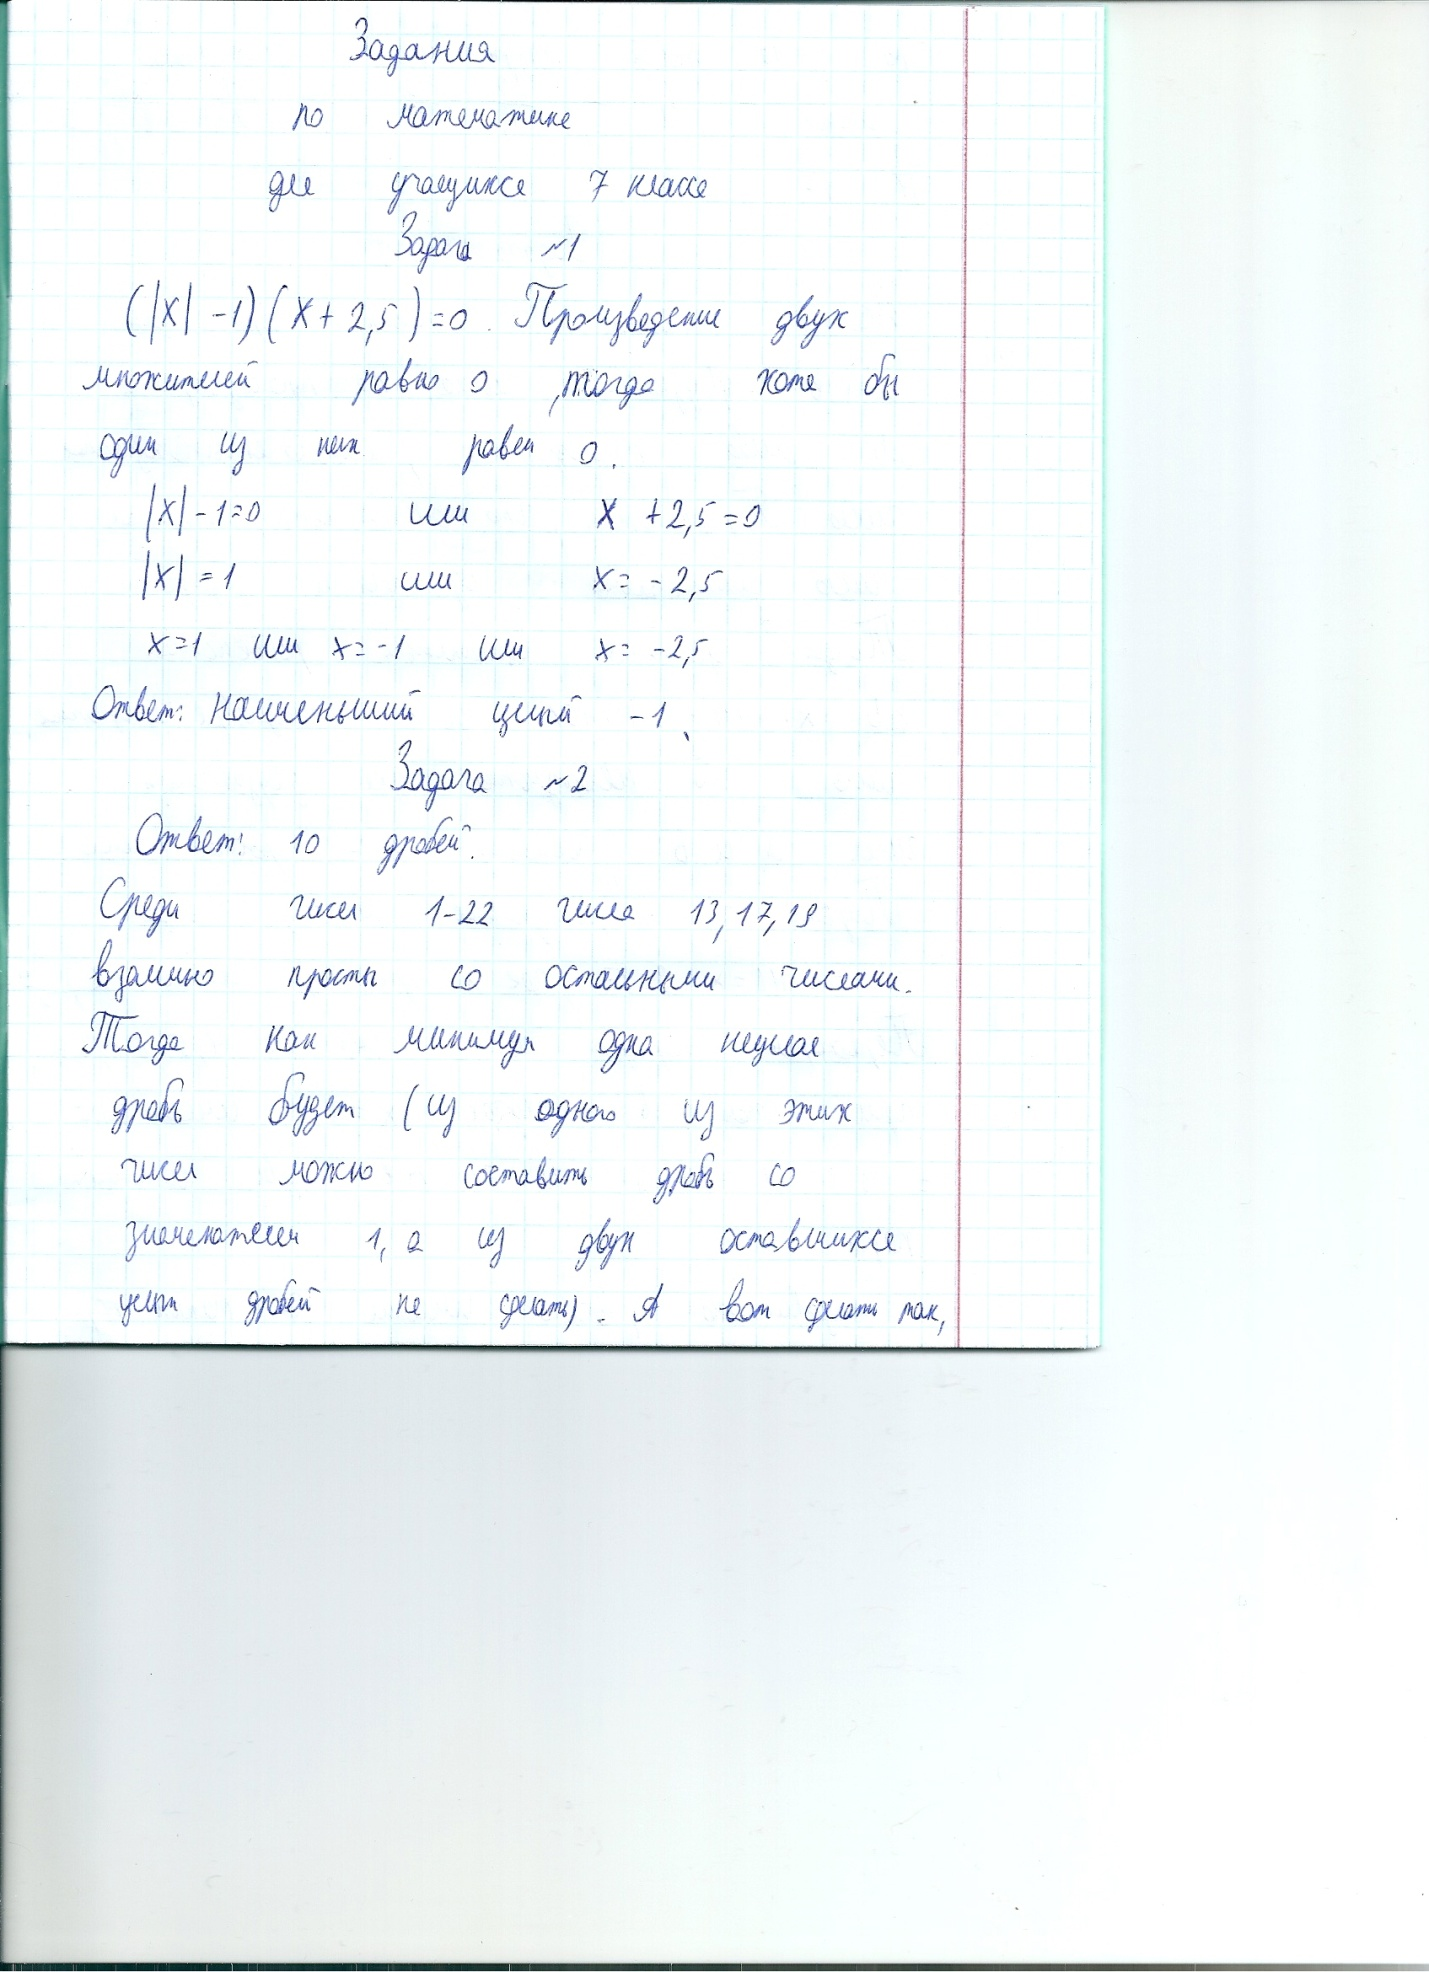 Задания
по математике
для учащихся 7 класса
Задача №1
(|x| -1)(x+2,5)=0. Произведение двух
множителей равно 0, тогда хотя бы
один из них равен 0.
|x|-1=0 или x+2,5=0
|x|=1 или x=-2,5
x=1 или x=-1 или x=-2,5
Ответ: наименьший целый -1.
Задача №2
Ответ: 10 дробей.
Среди чисел 1-22 числа 13, 17, 19
взаимно просты со остальными числами.
Тогда как минимум одна нецелая
дробь будет (из одного из этих
чисел можно составить дробь со
знаменателем 1, а из двух оставшихся
целых дробей не сделать). А вот сделать так,